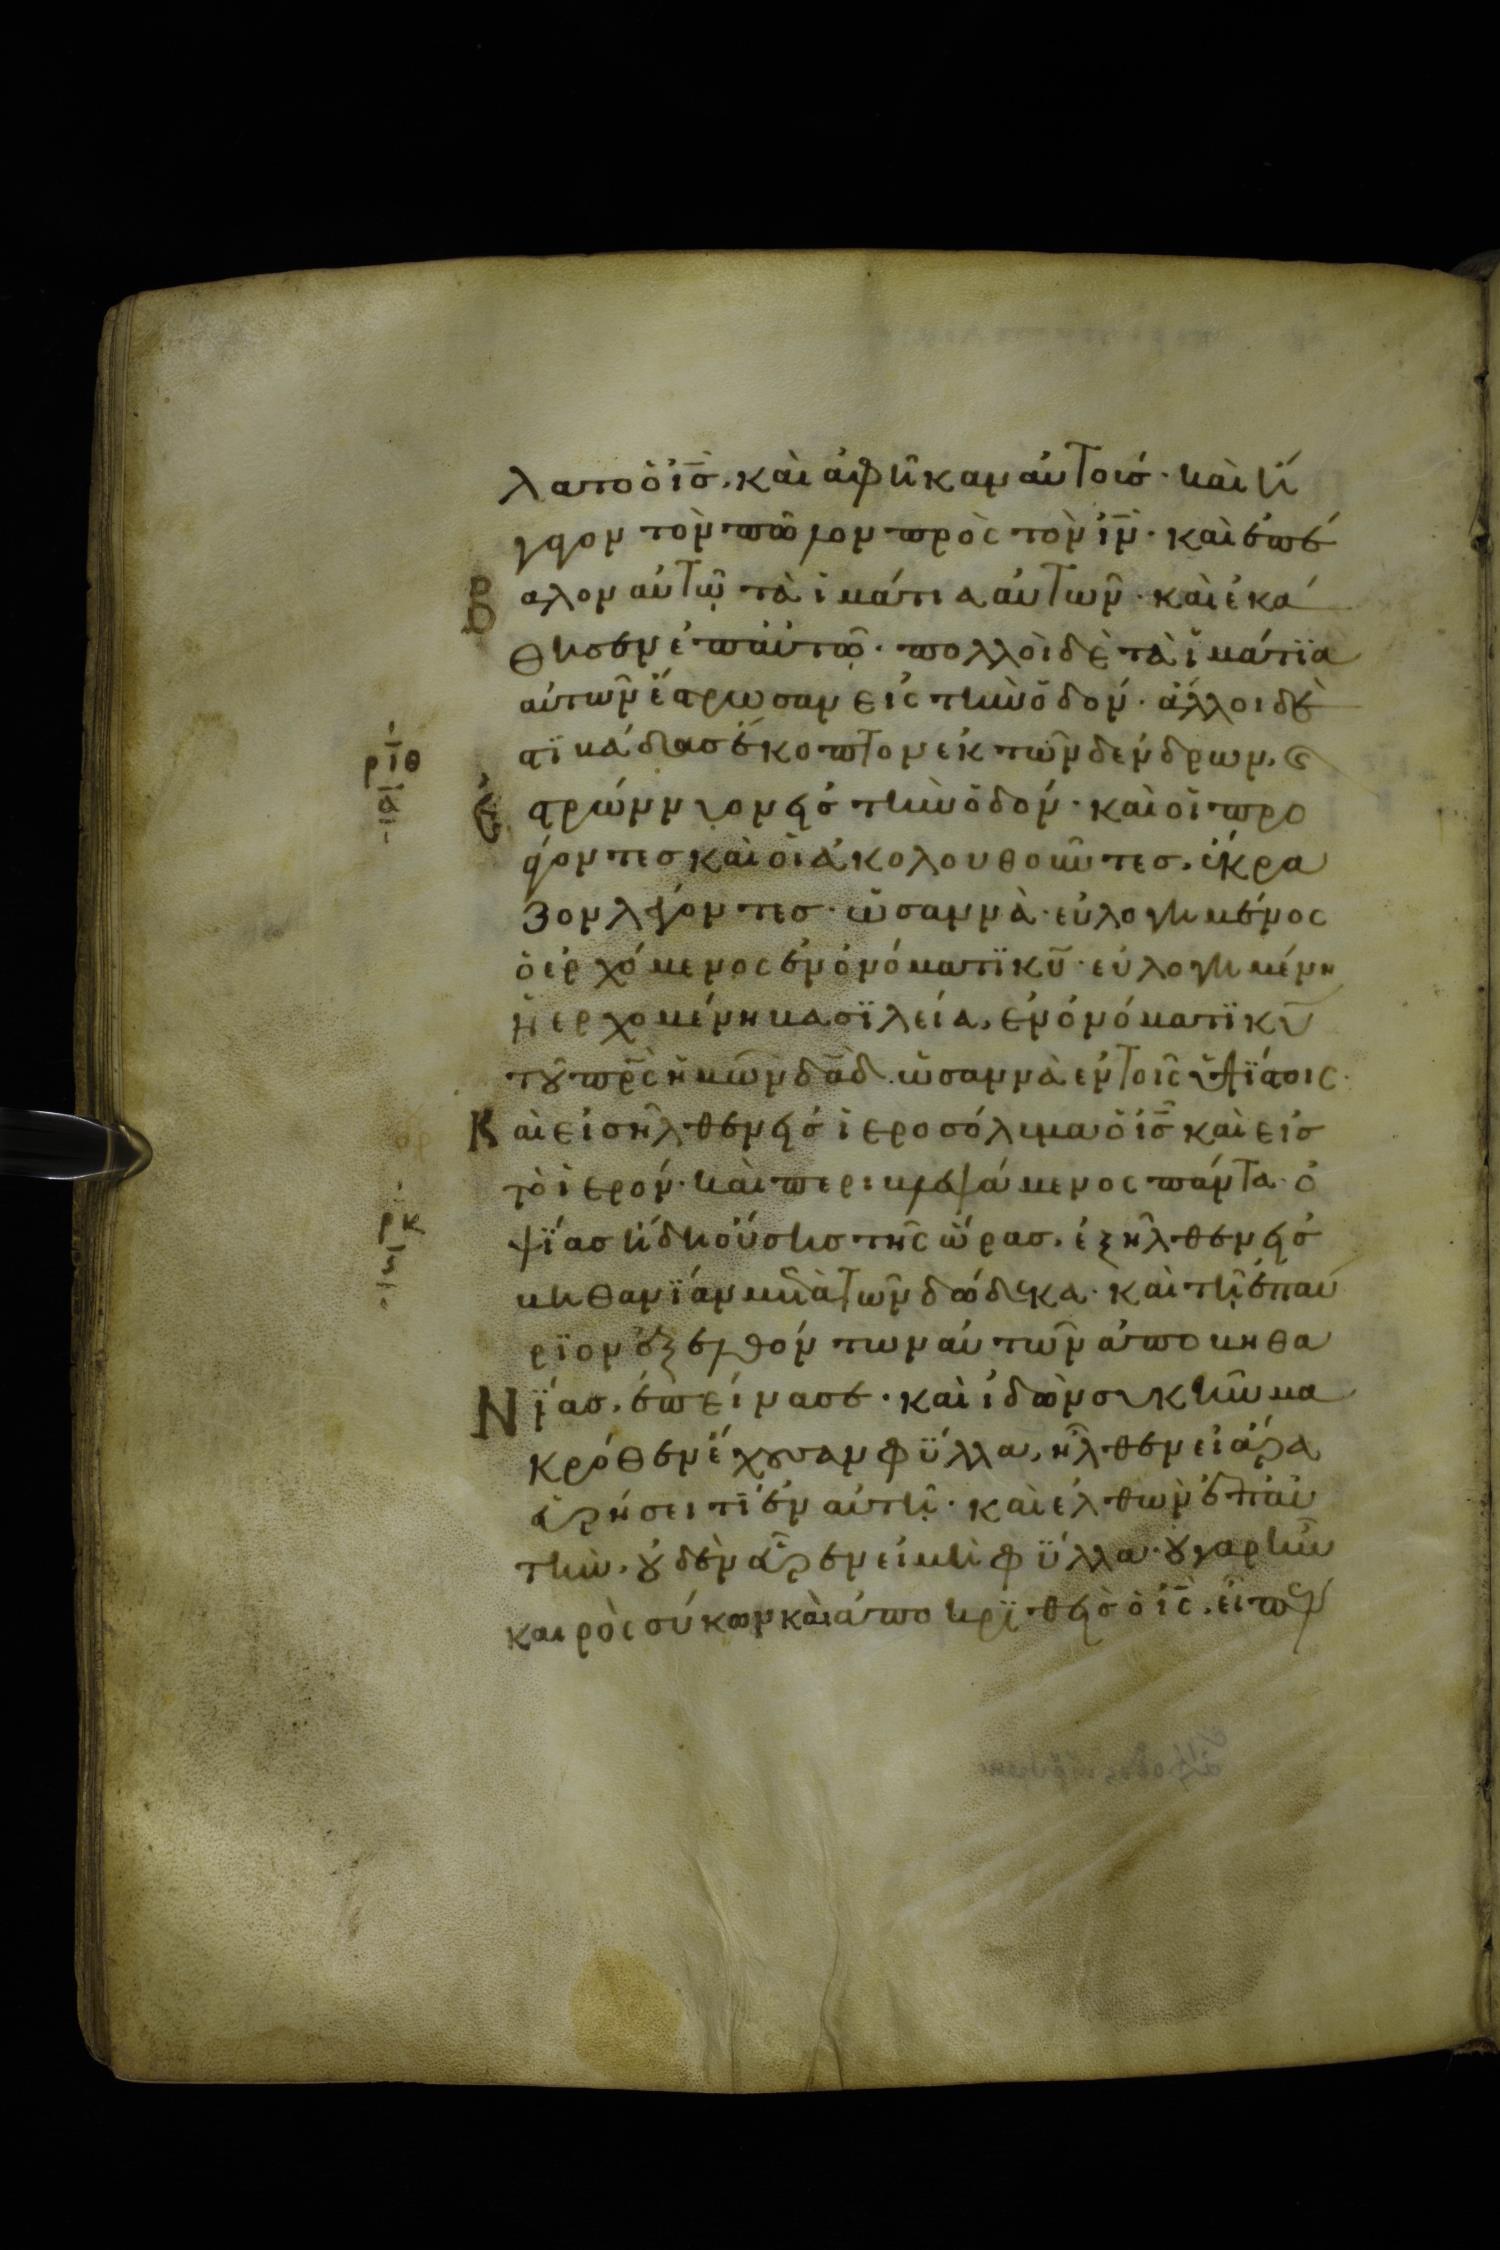 λατο ὁ ις̄. καὶ ἀφῆκαν αὐτοισ· καὶ ἤ
γαγον τὸν πῶλον πρὸς τὸν ιν̄· καὶ ἐπέ
βαλον αὐτῷ τὰ ἱμάτια αὐτῶν· καὶ ἐκά
θησεν ἐπ αὐτῷ· πολλοὶ δὲ τὰ ἱμάτϊα
αὐτῶν ἔστρωσαν εἰς τὴν ὁδόν· ἄλλοι δὲ
στϊβάδασ ἔκοπτον ἐκ τῶν δένδρων, καὶ
ριθ
ια
ἐστρώννυον εἰσ τὴν ὁδόν· καὶ οἱ προ
άγοντεσ καὶ οἱ ἀκολουθοῦντεσ, ἔκρα
ζον λέγοντεσ· ὡσαννὰ· εὐλογημένος
ὁ ἐρχόμενος ἐν ὀνόματϊ κῡ· εὐλογημένη
ἡ ἐρχομένη βασϊλεία, ἐν ὀνόματϊ κῡ
τοῦ πρ̄ς ἡμῶν δαδ̄. ὡσαννὰ ἐν τοῖς ὑψίστοις·
Καὶ εἰσῆλθεν εἰσ ἱεροσόλυμα ὁ ις̄ καὶ εἰσ
τὸ ἱερόν· καὶ περιβλεψάμενος πάντα· ὀ
ρκ
ψϊασ ἤδη οὔσησ τῆς ὥρασ, ἐξῆλθεν εἰσ
βηθανϊαν μετὰ τῶν δώδεκα· καὶ τῇ ἐπαύ
ρϊον ἐξελθόντων αὐτῶν ἀπο βηθα
Νϊασ, ἐπείνασε· καὶ ἰδὼν συκῆν μα
κρόθεν ἔχουσαν φϋλλα, ἦλθεν εἰ ἄρα
εὑρήσει τϊ ἐν αὐτῇ· καὶ ἐλθὼν ἐπ αὐ
τὴν, οὐδὲν εὗρεν εἰ μὴ φϋλλα· οὐ γαρ ἦν
καιρὸς σύκων καὶ ἀποκρϊθεὶσ ὁ ις̄, εἶπεν